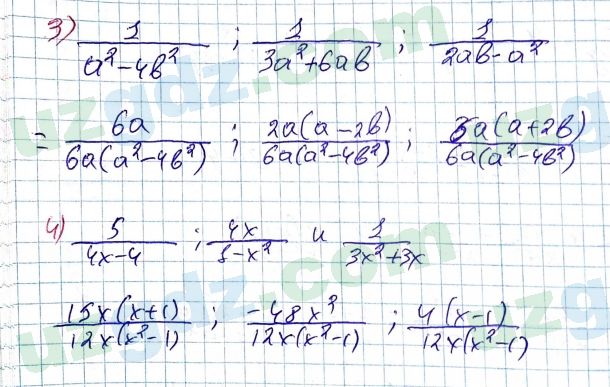 3) 1/(a²-4b²) ; 1/(3a²+6ab) ; 1/(2ab-a²)
= 6a/(6a(a²-4b²)) ; 2a(a-2b)/(6a(a²-4b²)) ; 6a(a+2b)/(6a(a²-4b²))
4) 5/(4x-4) ; 4x/(1-x²) и 1/(3x²+3x)
15x(x+1)/(12x(x²-1)) ; -48x²/(12x(x²-1)) ; 4(x-1)/(12x(x²-1))